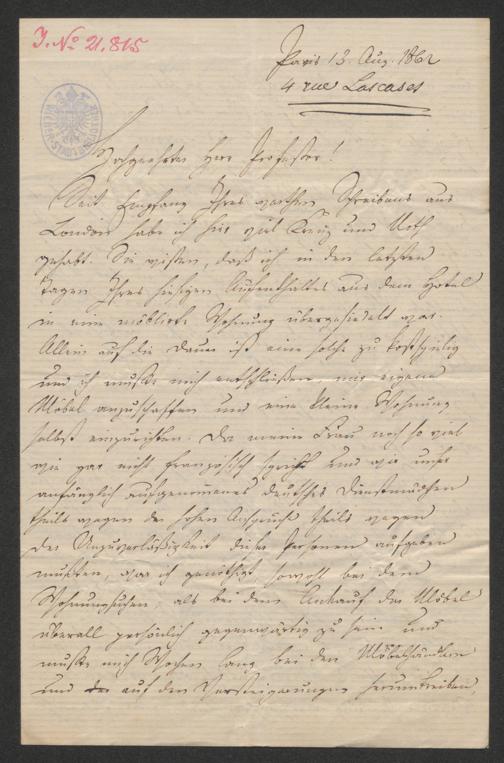 J. No 21.815
Paris 13. Aug. 1862
4 rue Lascases
WIENER STADTBIBLIOTHEK
Hochgeehrter Herr Professor!
Seit Empfang Ihres werthen Schreibens aus
London habe ich hier viel Kreuz und Noth
gehabt. Sie wissen, daß ich in den letzten
Tagen Ihres hiesigen Aufenthaltes aus dem Hotel
in eine möblirte Wohnung übergesiedelt war.
Allein auf die Dauer ist eine solche zu kostspielig
und ich mußte mich entschließen, mir eigene
Möbel anzuschaffen und eine kleine Wohnung
selbst einzurichten. Da meine Frau noch so viel
wie gar nicht französisch spricht und wir unser
anfänglich aufgenommenes deutsches Dienstmädchen
theils wegen der hohen Ansprüche theils wegen
der Unzuverläßigkeit dieser Personen aufgeben
mußten, war ich genöthigt sowohl bei dem
Wohnungsuchen, als bei dem Einkauf der Möbel
überall persönlich gegenwärtig zu sein und
mußte mich Wochen lang bei den Möbelhändlern
und auf den Versteigerungen herumtreiben,